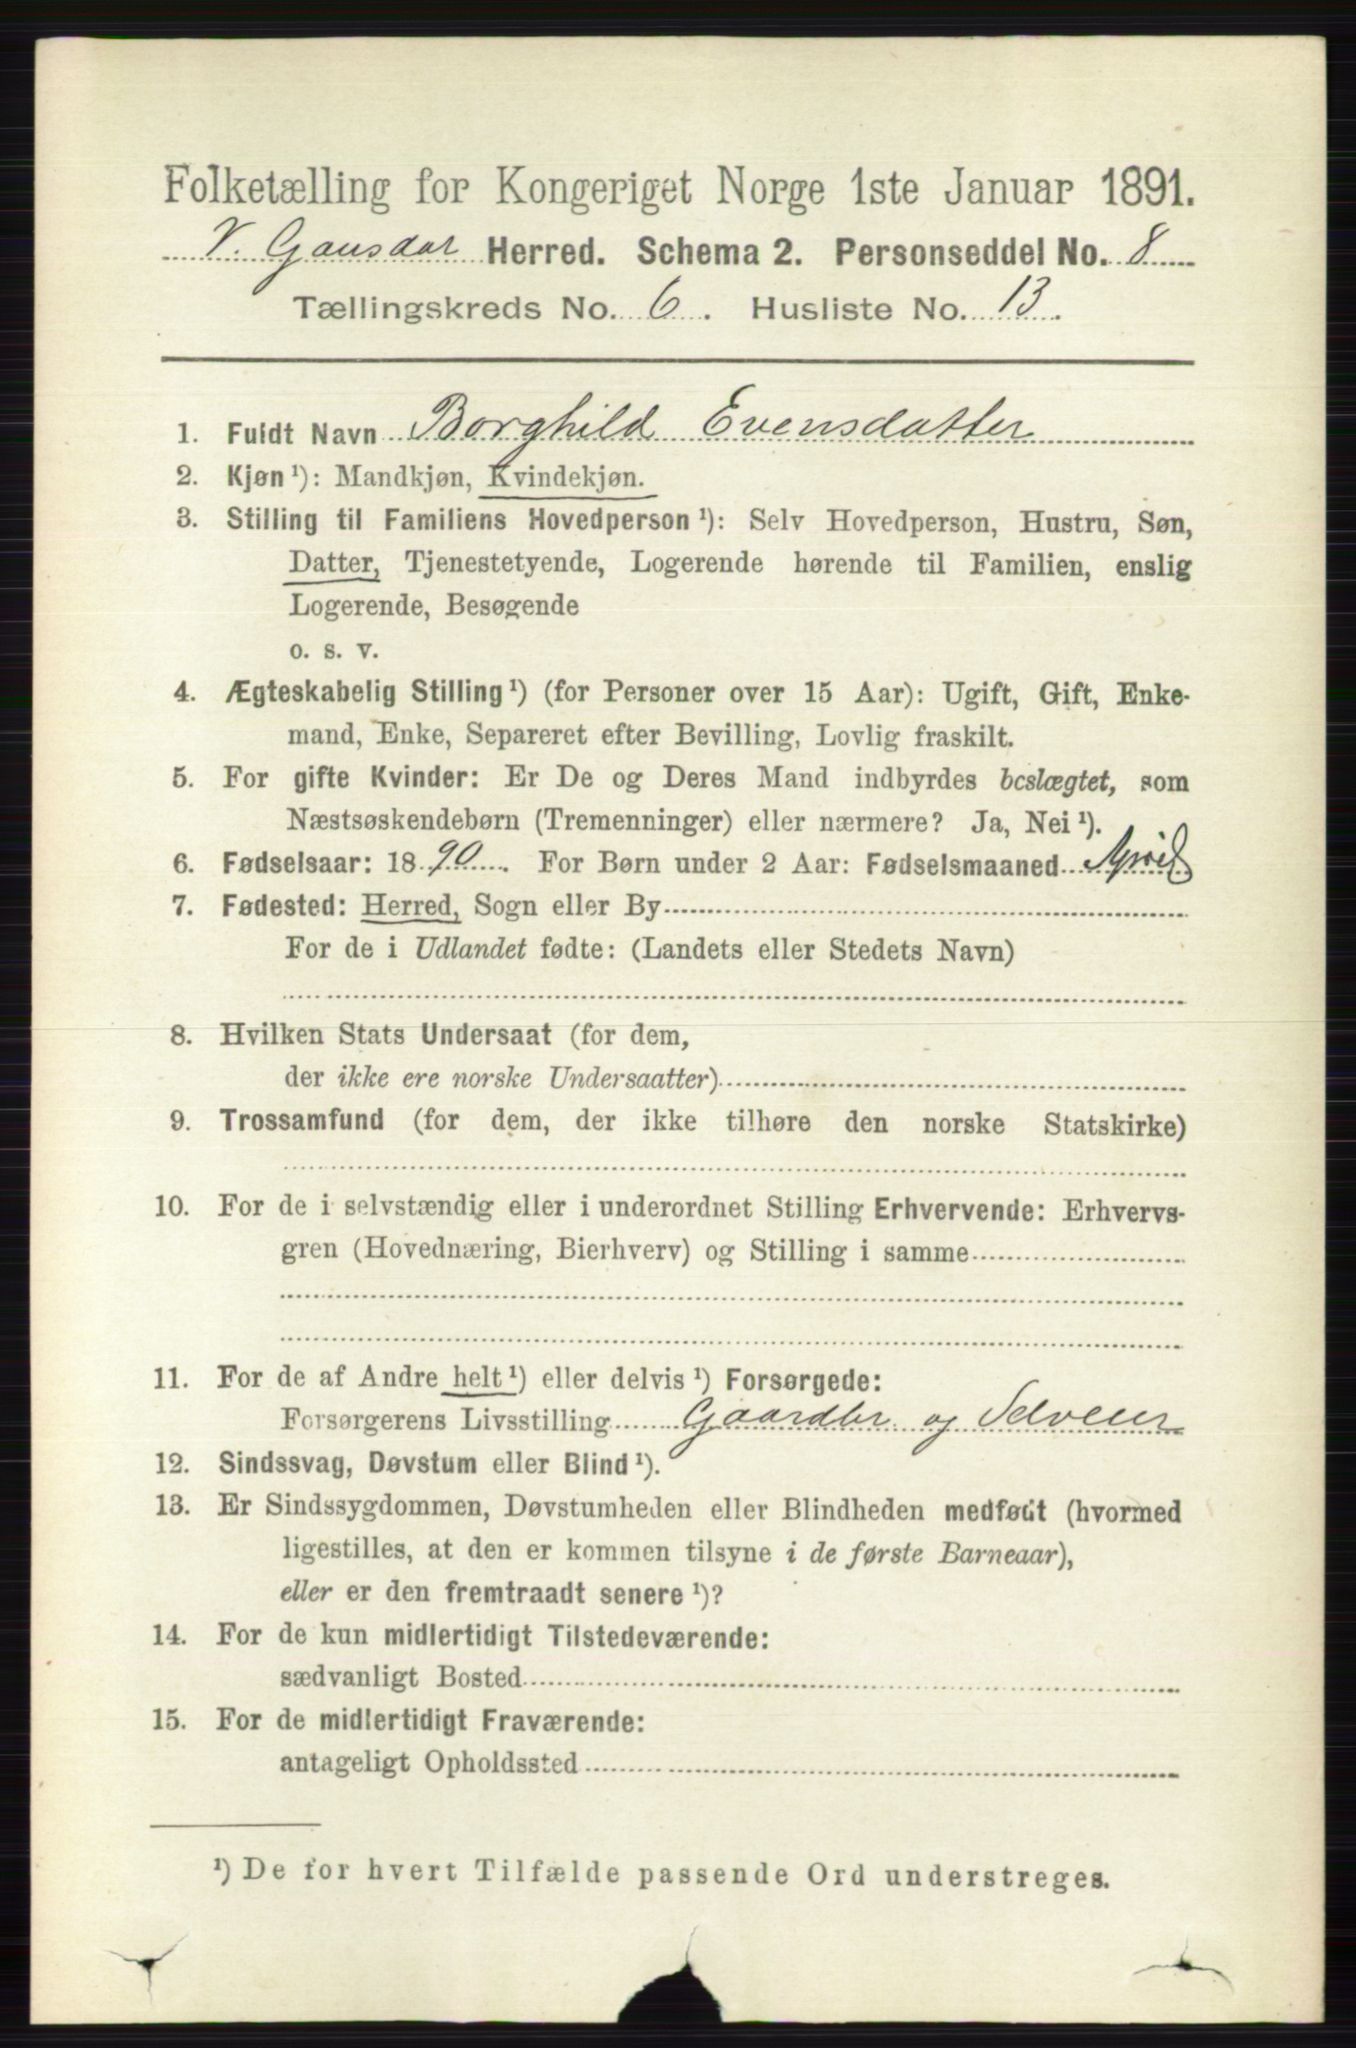 Folketælling for Kongeriget Norge 1ste Januar 1891.
V. Gausdal Herred. Schema 2. Personseddel No. 8
Tællingskreds No. 6. Husliste No. 13.
1. Fuldt Navn Borghild Evensdatter
2. Kjøn ¹): Mandkjøn, Kvindekjøn.
3. Stilling til Familiens Hovedperson ¹): Selv Hovedperson, Hustru, Søn,
Datter, Tjenestetyende, Logerende hørende til Familien, enslig
Logerende, Besøgende
o. s. v.
4. Ægteskabelig Stilling ¹) (for Personer over 15 Aar): Ugift, Gift, Enke-
mand, Enke, Separeret efter Bevilling, Lovlig fraskilt.
5. For gifte Kvinder: Er De og Deres Mand indbyrdes beslægtet, som
Næstsøskendebørn (Tremenninger) eller nærmere? Ja, Nei ¹).
6. Fødselsaar: 1890. For Børn under 2 Aar: Fødselsmaaned April
7. Fødested: Herred, Sogn eller By
For de i Udlandet fødte: (Landets eller Stedets Navn)
8. Hvilken Stats Undersaat (for dem,
der ikke ere norske Undersaatter)
9. Trossamfund (for dem, der ikke tilhøre den norske Statskirke)
10. For de i selvstændig eller i underordnet Stilling Erhvervende: Erhvervs-
gren (Hovednæring, Bierhverv) og Stilling i samme
11. For de af Andre helt ¹) eller delvis ¹) Forsørgede:
Forsørgerens Livsstilling Gaardbr. og Selveier
12. Sindssvag, Døvstum eller Blind ¹).
13. Er Sindssygdommen, Døvstumheden eller Blindheden medfødt (hvormed
ligestilles, at den er kommen tilsyne i de første Barneaar),
eller er den fremtraadt senere ¹)?
14. For de kun midlertidigt Tilstedeværende:
sædvanligt Bosted
15. For de midlertidigt Fraværende:
antageligt Opholdssted
¹) De for hvert Tilfælde passende Ord understreges.